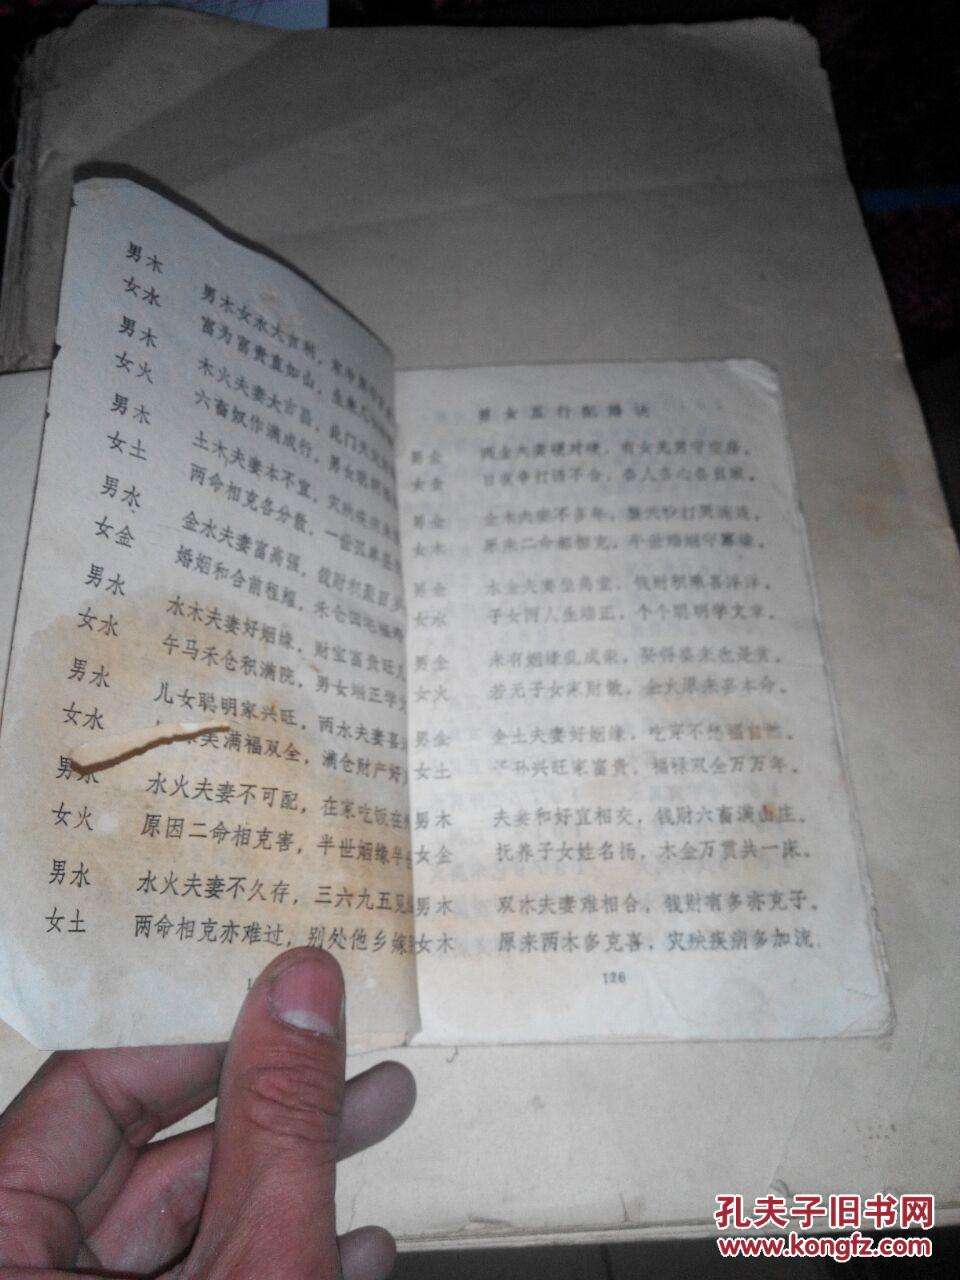 男木
女水
男木女水大吉利，
富为富贵直如山，
男木
女火
木火夫妻大吉昌，此门
六畜奴作满成行，男女聪
男木
女土
土木夫妻本不宜，灾殃
两命相克各分散，一世孤
男水
女金
金水夫妻富高强，钱财积聚百
婚姻和合前程耀，禾仓田宅福
男水
女水
水木夫妻好姻缘，财宝富贵旺儿
午马禾仓积满院，男女端正学
男水
女水
儿女聪明家兴旺，两水夫妻喜
美满福双全，满仓财产好
男水
女火
水火夫妻不可配，在家吃饭在
原因二命相克害，半世姻缘半
男水
女土
水火夫妻不久存，三六九五见
两命相克亦难过，别处他乡嫁
男女五行配婚诀
男金
女金
两金夫妻硬对硬，有女无男守空房。
日夜争打语不合，各人各心各自眠。
男金
女木
金木夫妻不多年，整天吵打哭连连，
原来二命都相克，半世婚姻守寡缘。
男金
女水
水金夫妻坐高堂，钱财积聚喜洋洋。
子女两人生端正，个个聪明学文章。
男金
女火
未有姻缘乱成亲，娶得妻来也是贫。
若无子女家财散，金火原来害本命。
男金
女土
金土夫妻好姻缘，吃穿不愁福自然。
子孙兴旺家富贵，福禄双全万万年。
男木
女金
夫妻和好宜相交，钱财六畜满山庄。
抚养子女姓名扬，木金万贯共一床。
男木
女木
双木夫妻难相合，钱财有多亦克子。
原来两木多克喜，灾殃疾病多加
126
孔夫子旧书网
www.kongfz.com